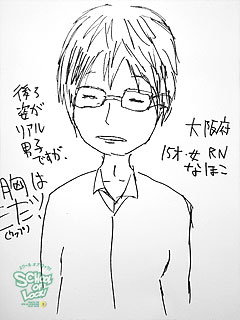 後ろ
姿が
リアル
男子
ですが、
胸は
ニだッ!
大阪府
15才・女 RN
なほこ
SCHOOL
OF LOCK!